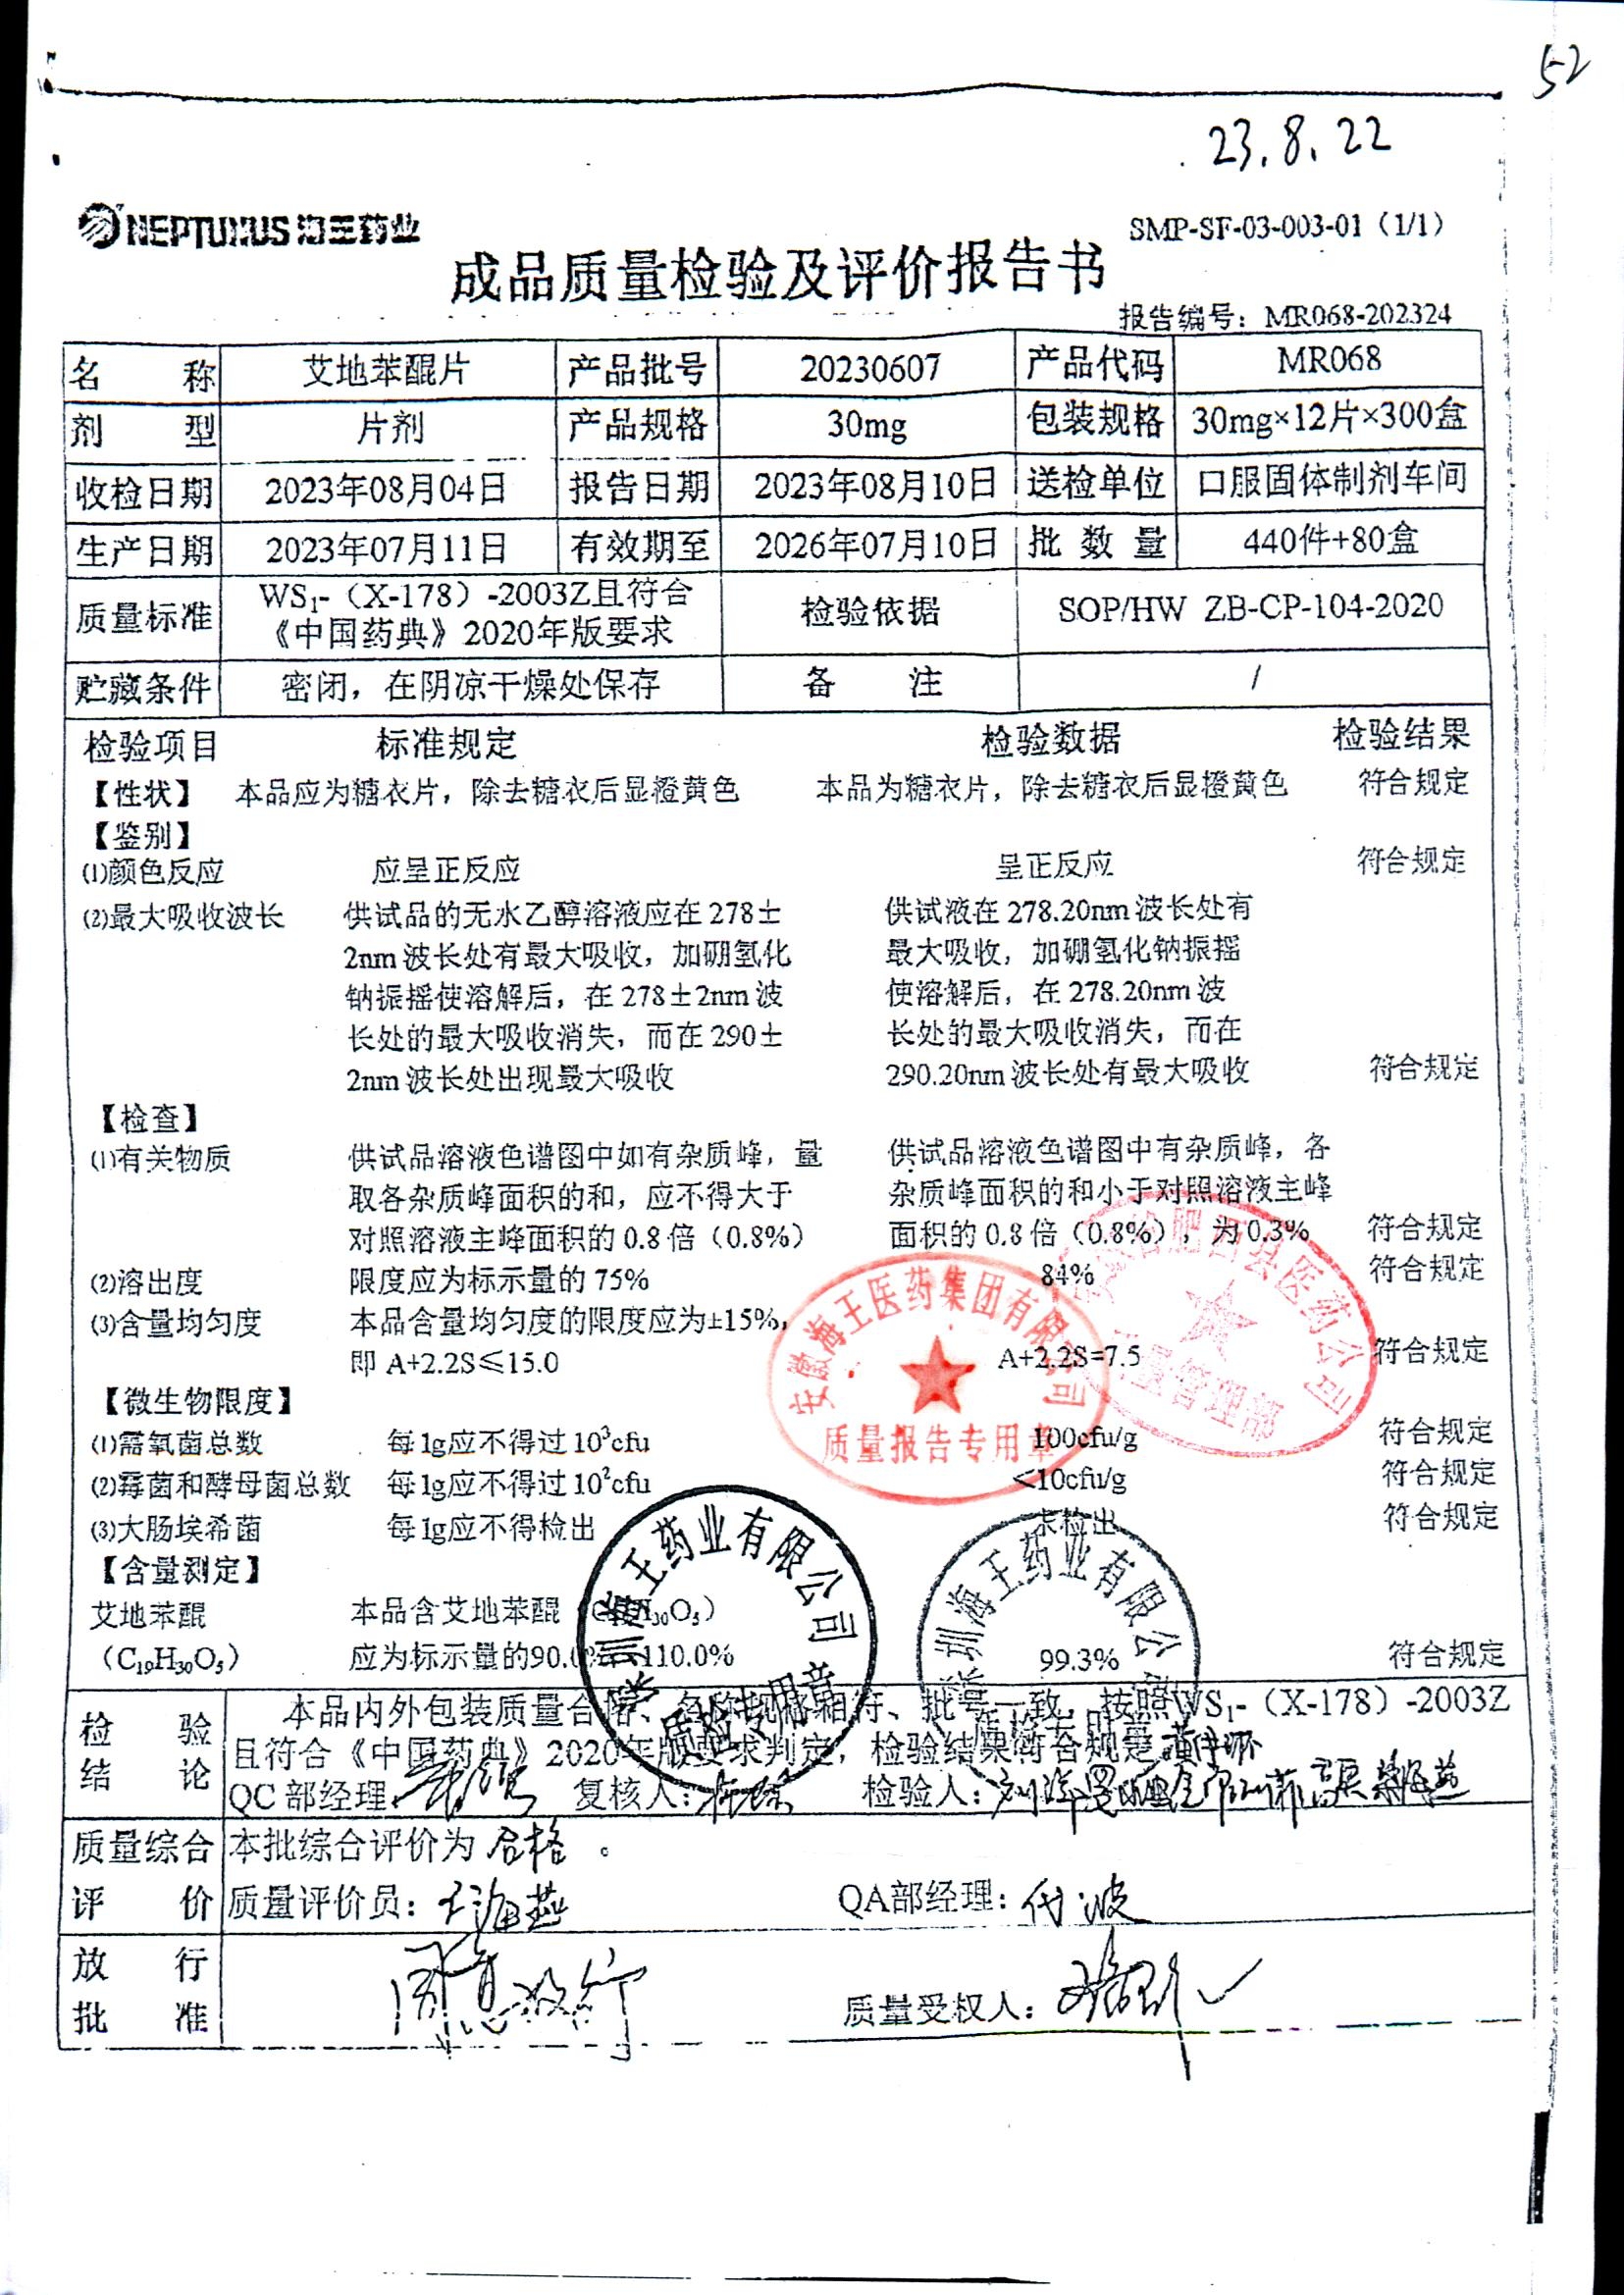 52
23.8.22
NEPTUNUS 海王药业
SMP-SF-03-003-01（1/1）
成品质量检验及评价报告书
报告编号：MR068-202324
名 称 艾地苯醌片 产品批号 20230607 产品代码 MR068
剂 型 片剂 产品规格 30mg 包装规格 30mg×12片×300盒
收检日期 2023年08月04日 报告日期 2023年08月10日 送检单位 口服固体制剂车间
生产日期 2023年07月11日 有效期至 2026年07月10日 批 数 量 440件+80盒
质量标准 WS₁-（X-178）-2003Z且符合《中国药典》2020年版要求 检验依据 SOP/HW ZB-CP-104-2020
贮藏条件 密闭，在阴凉干燥处保存 备 注 /
检验项目 标准规定 检验数据 检验结果
【性状】 本品应为糖衣片，除去糖衣后显橙黄色 本品为糖衣片，除去糖衣后显橙黄色 符合规定
【鉴别】
⑴颜色反应 应呈正反应 呈正反应 符合规定
⑵最大吸收波长 供试品的无水乙醇溶液应在 278± 供试液在 278.20nm 波长处有
2nm 波长处有最大吸收，加硼氢化 最大吸收，加硼氢化钠振摇
钠振摇使溶解后，在 278±2nm 波 使溶解后，在 278.20nm 波
长处的最大吸收消失，而在 290± 长处的最大吸收消失，而在
2nm 波长处出现最大吸收 290.20nm 波长处有最大吸收 符合规定
【检查】
⑴有关物质 供试品溶液色谱图中如有杂质峰，量 供试品溶液色谱图中有杂质峰，各
取各杂质峰面积的和，应不得大于 杂质峰面积的和小于对照溶液主峰
对照溶液主峰面积的 0.8 倍（0.8%） 面积的 0.8 倍（0.8%），为 0.3% 符合规定
⑵溶出度 限度应为标示量的 75% 84% 符合规定
⑶含量均匀度 本品含量均匀度的限度应为±15%，
即 A+2.2S≤15.0 A+2.2S=7.5 符合规定
【微生物限度】
⑴需氧菌总数 每 1g应不得过 10³cfu 100cfu/g 符合规定
⑵霉菌和酵母菌总数 每 1g应不得过 10²cfu <10cfu/g 符合规定
⑶大肠埃希菌 每 1g应不得检出 未检出 符合规定
【含量测定】
艾地苯醌 本品含艾地苯醌（C₁₉H₃₀O₅）
（C₁₉H₃₀O₅） 应为标示量的90.0%～110.0% 99.3% 符合规定
安徽海王医药集团有限公司
质量报告专用章
肥西县医药公司
质量管理部
深圳海王药业有限公司
质检专用章
深圳海王药业有限公司
检 验 结 论 本品内外包装质量合格、名称规格相符、批号一致，按照WS₁-（X-178）-2003Z
且符合《中国药典》2020年版要求判定，检验结果符合规定。
QC 部经理： 复核人： 检验人：
质量综合 本批综合评价为 合格 。
评 价 质量评价员：王海燕 QA部经理：代波
放 行 批 准 同意放行 质量受权人：